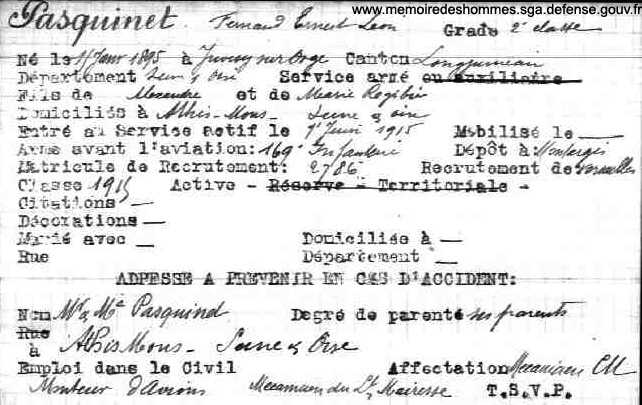 www.memoiredeshommes.sga.defense.gouv.fr
Pasquinet Fernand Ernest Leon Grade 2e classe
Né le 1r Janv 1895 à Juvisy sur Orge Canton Longjumeau
Département Seine & Oise Service armé ou auxiliaire
Fils de Alexandre et de Marie
Domiciliés à Athis-Mons- Seine & Oise
Entré au Service actif le 1r Juin 1915 Mobilisé le —
Arme avant l'aviation: 169e Infanterie Dépôt à Montargis
Matricule de Recrutement: 2786 Recrutement de Versailles
Classe 1915 Active - Réserve - Territoriale -
Citations —
Décorations —
Marié avec — Domiciliée à —
Rue Département —
ADRESSE A PREVENIR EN CAS D'ACCIDENT:
Nom Mr & Me Pasquinet Degré de parenté ses parents
Rue
à Athis Mons - Seine & Oise
Emploi dans le Civil Affectation Mecanicien
Monteur d'Avions Mecanicien du Lt Mairesse T.S.V.P.